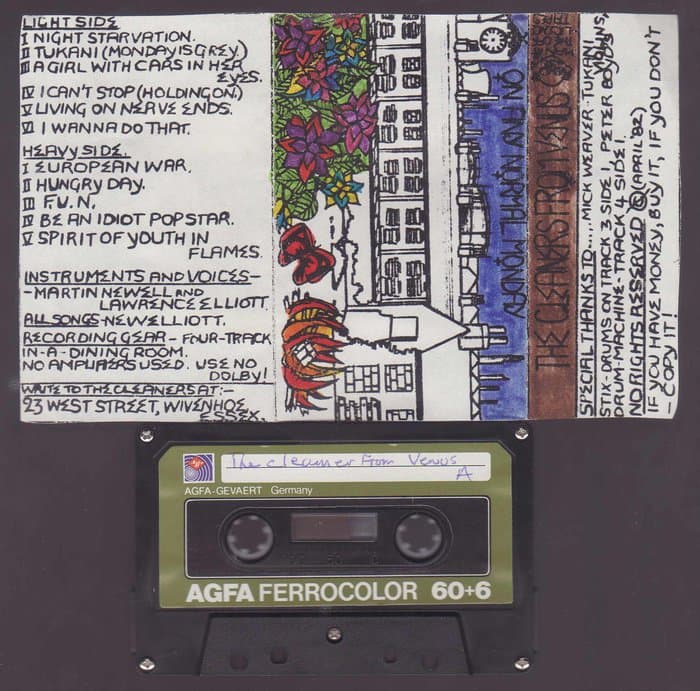 LIGHT SIDE
I NIGHT STARVATION.
II TUKANI (MONDAY IS GREY)
III A GIRL WITH CARS IN HER
EYES.
IV I CAN'T STOP (HOLDING ON)
V LIVING ON NERVE ENDS.
VI I WANNA DO THAT.
HEAVY SIDE.
I EUROPEAN WAR.
II HUNGRY DAY.
III F.U.N.
IV BE AN IDIOT POPSTAR.
V SPIRIT OF YOUTH IN
FLAMES.
INSTRUMENTS AND VOICES-
-MARTIN NEWELL AND
LAWRENCE ELLIOTT.
ALL SONGS-NEWELLIOTT.
RECORDING GEAR - FOUR-TRACK
IN-A-DINING ROOM.
NO AMPLIFIERS USED. USE NO
DOLBY!
WRITE TO THE CLEANERS AT:-
23 WEST STREET, WIVENHOE,
ESSEX.
ON ANY NORMAL MONDAY
THE CLEANERS FROM VENUS
SPECIAL THANKS TO...., MICK WEAVER-TUKANI
STIX-DRUMS ON TRACK 3 SIDE 1, PETER
DRUM-MACHINE-TRACK 4 SIDE 1.
NO RIGHTS RESERVED © (APRIL '82)
IF YOU HAVE MONEY, BUY IT, IF YOU DON'T
- COPY IT!
The cleaner From Venus
A
AGFA-GEVAERT Germany
AGFA FERROCOLOR 60+6